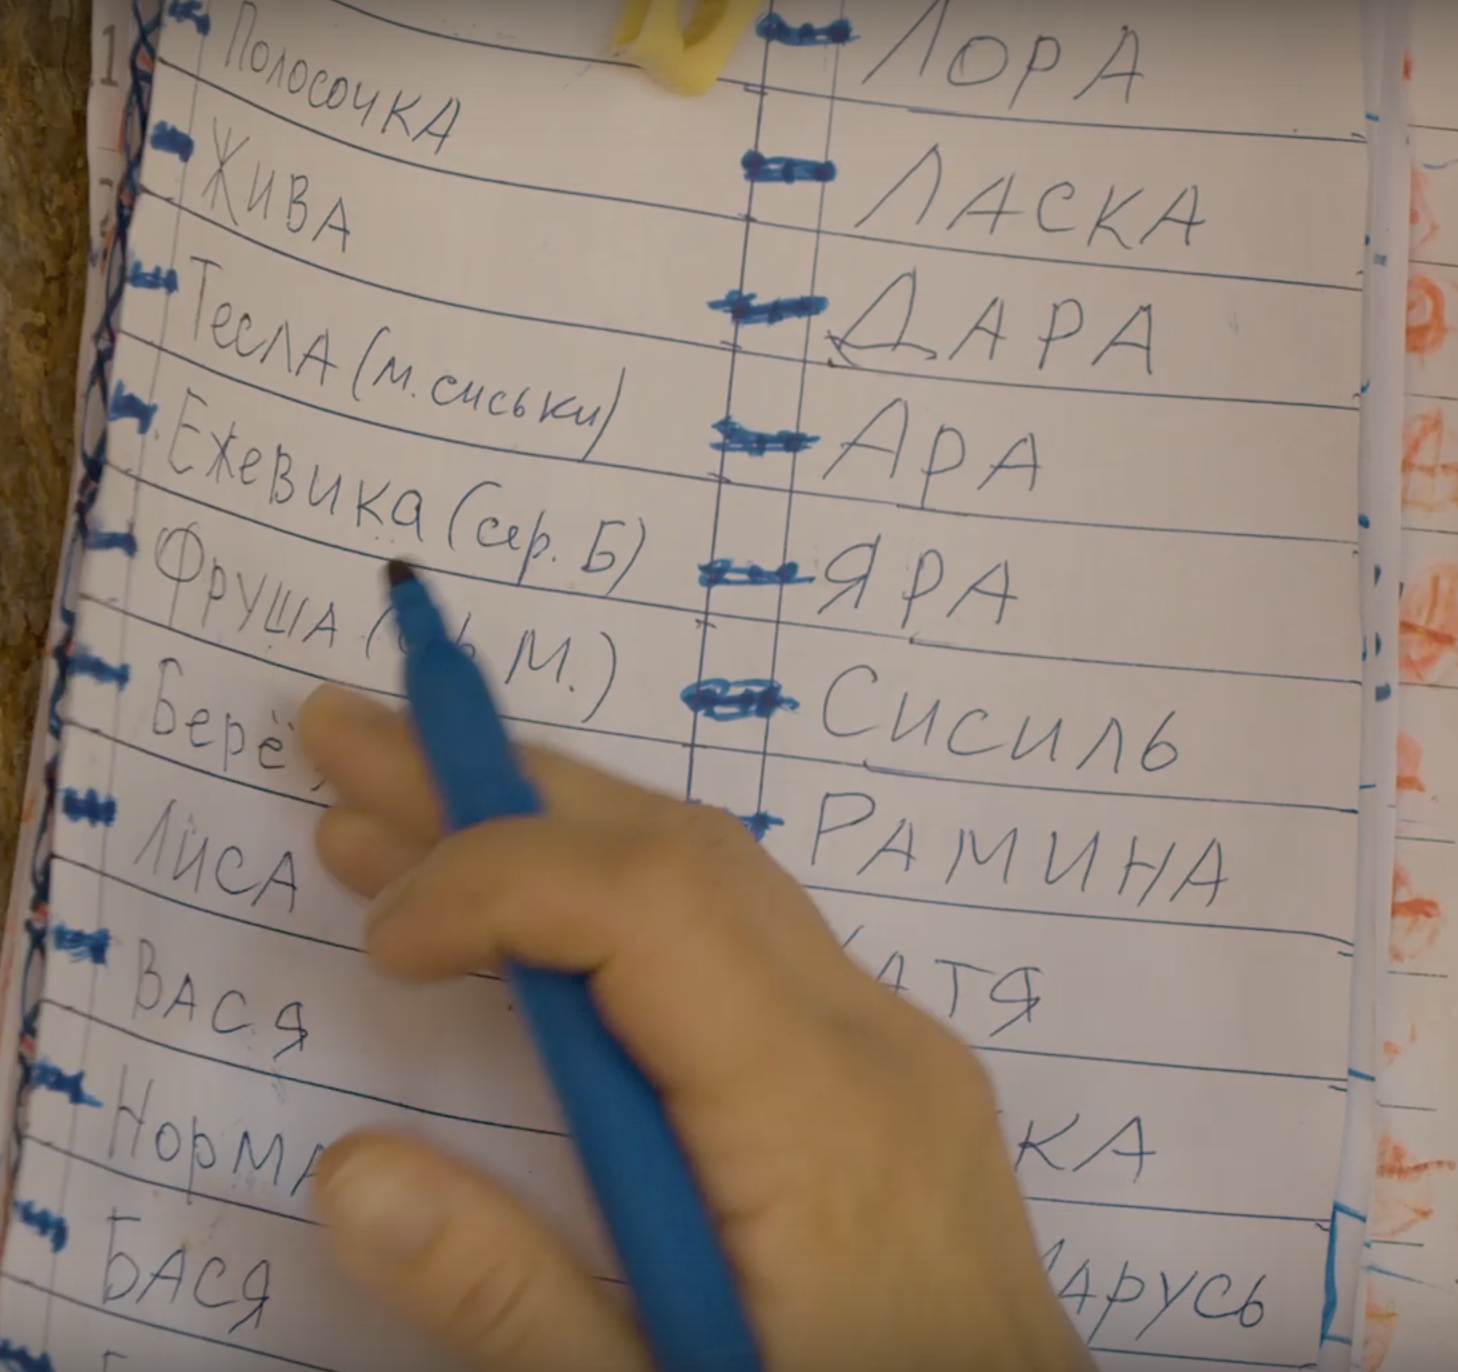 Полосочка
Жива
Тесла (м. сиськи)
Ежевика (сер. Б)
Фруша ( М.)
Лиса
Вася
Норма
Бася
Лора
Ласка
Дара
Ара
Яра
Сисиль
Рамина